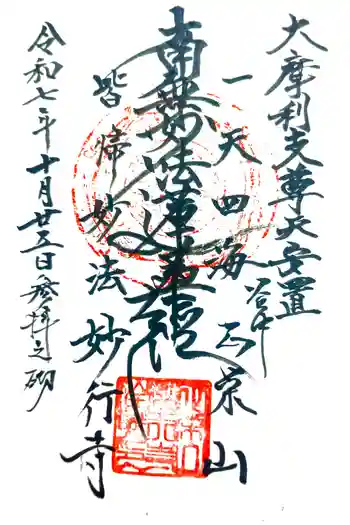 大摩利支尊天安置
谷中
一天四海
正栄山
南無妙法蓮華経
皆帰妙法
妙行寺
令和七年十月廿五日参拝之砌